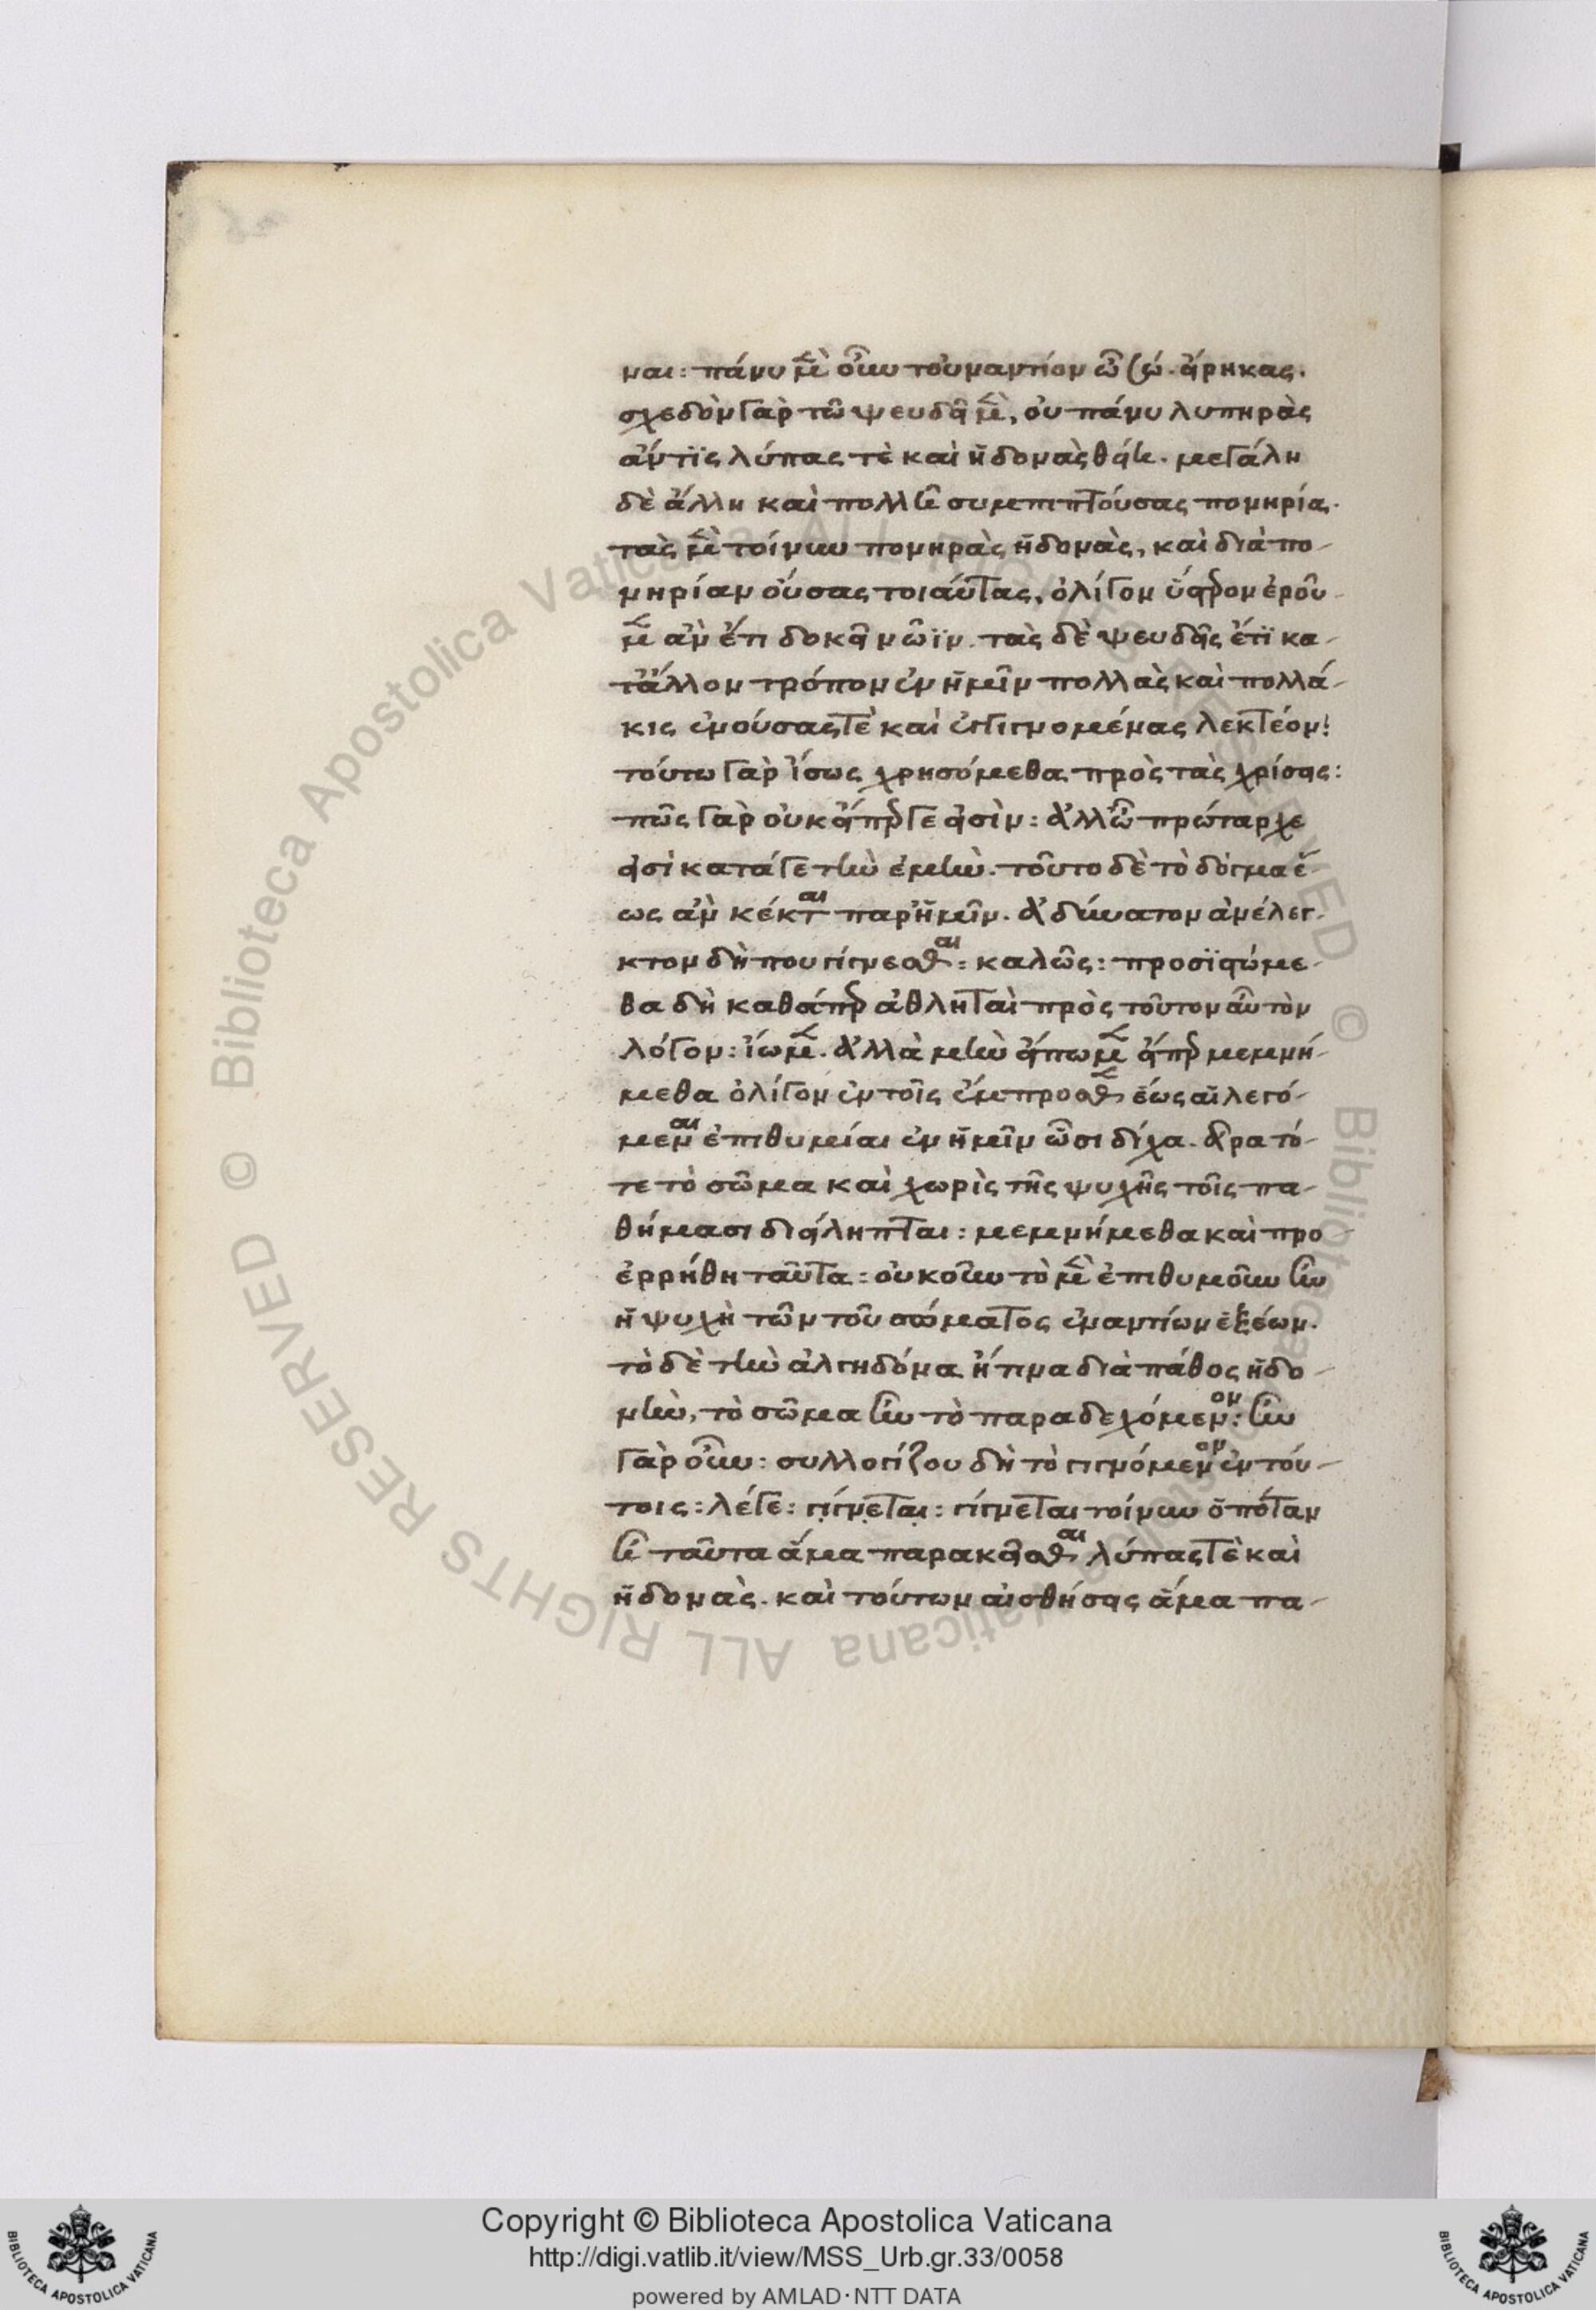 ναι: πάνυ μὲν οὖν τοὐναντίον ὦ σώ. εἴρηκας.
σχεδὸν γὰρ τῶ ψευδεῖ μὲν, οὐ πάνυ λυπηρὰς
ἄν τις λύπας τὲ καὶ ἡδονὰς θείη. μεγάλη
δὲ ἄλλη καὶ πολλῆ συμπιπτούσας πονηρία.
τὰς μὲν τοίνυν πονηρὰς ἡδονὰς, καὶ διὰ πο-
νηρίαν οὔσας τοιαύτας, ὀλίγον ὕστερον ἐροῦ-
μεν ἂν ἔτι δοκεῖ νῶϊν. τὰς δὲ ψευδεῖς ἔτι κα-
τ' ἄλλον τρόπον ἐν ἡμῖν πολλὰς καὶ πολλά-
κις ἐνούσας τὲ καὶ ἐγγιγνομένας λεκτέον.
τούτω γὰρ ἴσως χρησόμεθα πρὸς τὰς χρίσεις:
πῶς γὰρ οὐκ εἴπερ γε εἰσὶν: ἀλλ' ὦ πρώταρχε
εἰσὶ κατά γε τὴν ἐμήν. τοῦτο δὲ τὸ δόγμα ἕ-
ως ἂν κέκται παρ' ἡμῖν. ἀδύνατον ἀνέλεγ-
κτον δή που γίγνεσθαι: καλῶς: προσϊστώμε-
θα δὴ καθάπερ ἀθληταὶ πρὸς τοῦτον αὖ τὸν
λόγον: ἴωμεν. ἀλλὰ μὴν εἴπωμεν εἴπερ μεμνή-
μεθα ὀλίγον ἐν τοῖς ἔμπροσθεν ἕως αἱ λεγό-
μεναι ἐπιθυμίαι ἐν ἡμῖν ὦσι δίχα. ἄρα τό-
τε τὸ σῶμα καὶ χωρὶς τῆς ψυχῆς τοῖς πα-
θήμασι διείληπται: μεμνήμεθα καὶ προ
ἐρρήθη ταῦτα: οὐκοῦν τὸ μὲν ἐπιθυμοῦν ἦν
ἡ ψυχὴ τῶν τοῦ σώματος ἐναντίων ἕξεων.
τὸ δὲ τὴν ἀλγηδόνα ἤ τινα διὰ πάθος ἡδο-
νὴν, τὸ σῶμα ἦν τὸ παραδεχόμενον: ἦν
γὰρ οὖν: συλλογίζου δὴ τὸ γιγνόμενον ἐν τού-
τοις: λέγε: γίγνεται: γίγνεται τοίνυν ὁπόταν
ἦ ταῦτα ἅμα παρακεῖσθαι λύπας τὲ καὶ
ἡδονὰς. καὶ τούτων αἰσθήσεις ἅμα πα-
Copyright © Biblioteca Apostolica Vaticana
http://digi.vatlib.it/view/MSS_Urb.gr.33/0058
powered by AMLAD·NTT DATA
© Biblioteca Apostolica Vaticana ALL RIGHTS RESERVED
© Biblioteca Apostolica Vaticana ALL RIGHTS RESERVED
BIBLIOTECA APOSTOLICA VATICANA
BIBLIOTECA APOSTOLICA VATICANA